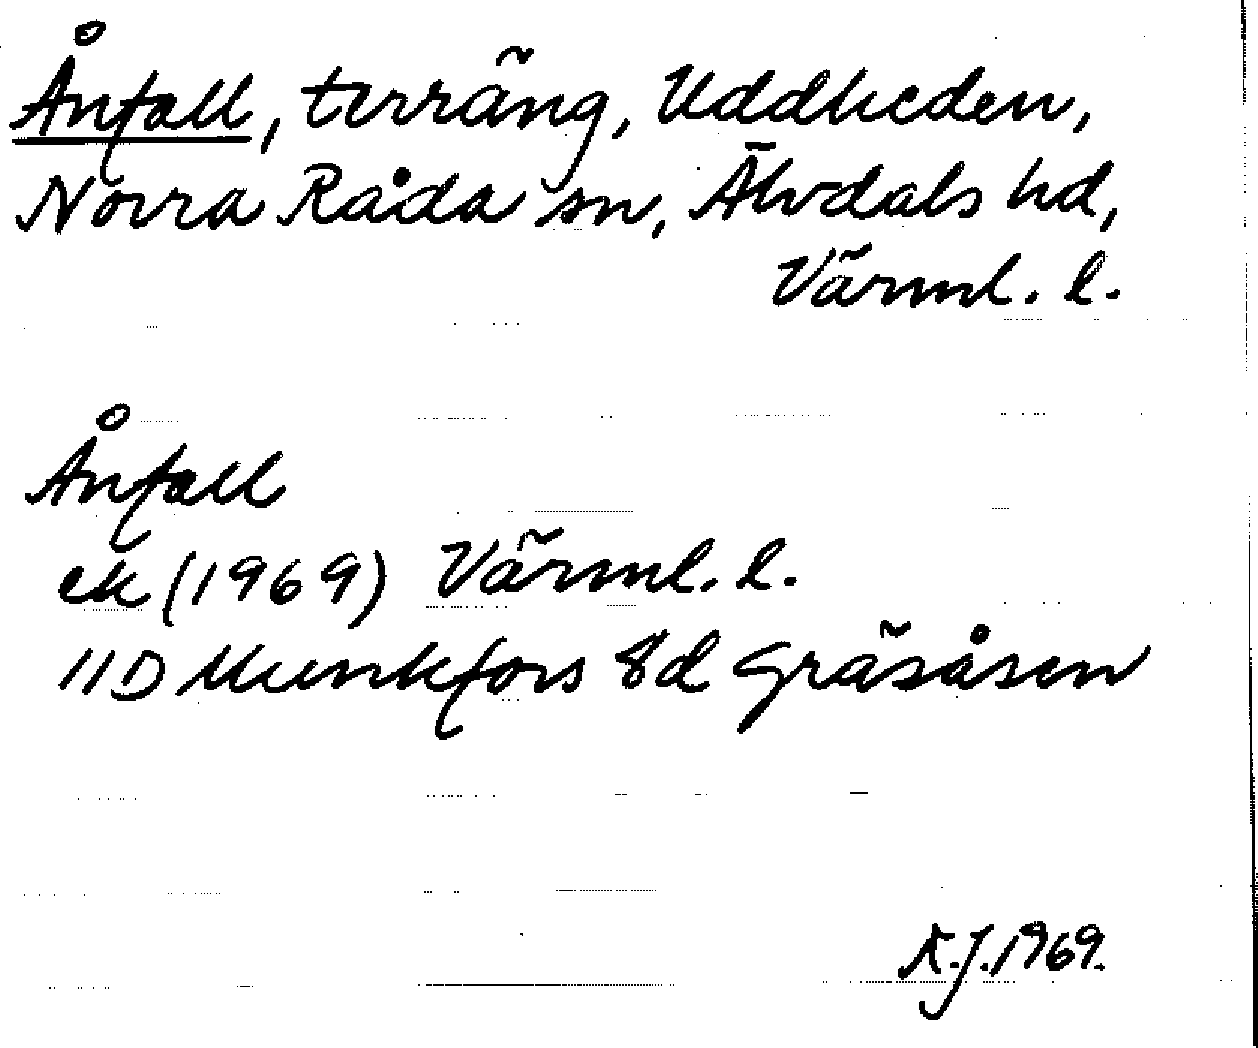 Ånfall, terräng, Uddheden,
Norra Råda sn, Älvdals hd,
Värml. l.
Ånfall
ek (1969) Värml. l.
11D Munkfors 8d Gräsåsen
K.J. 1969.